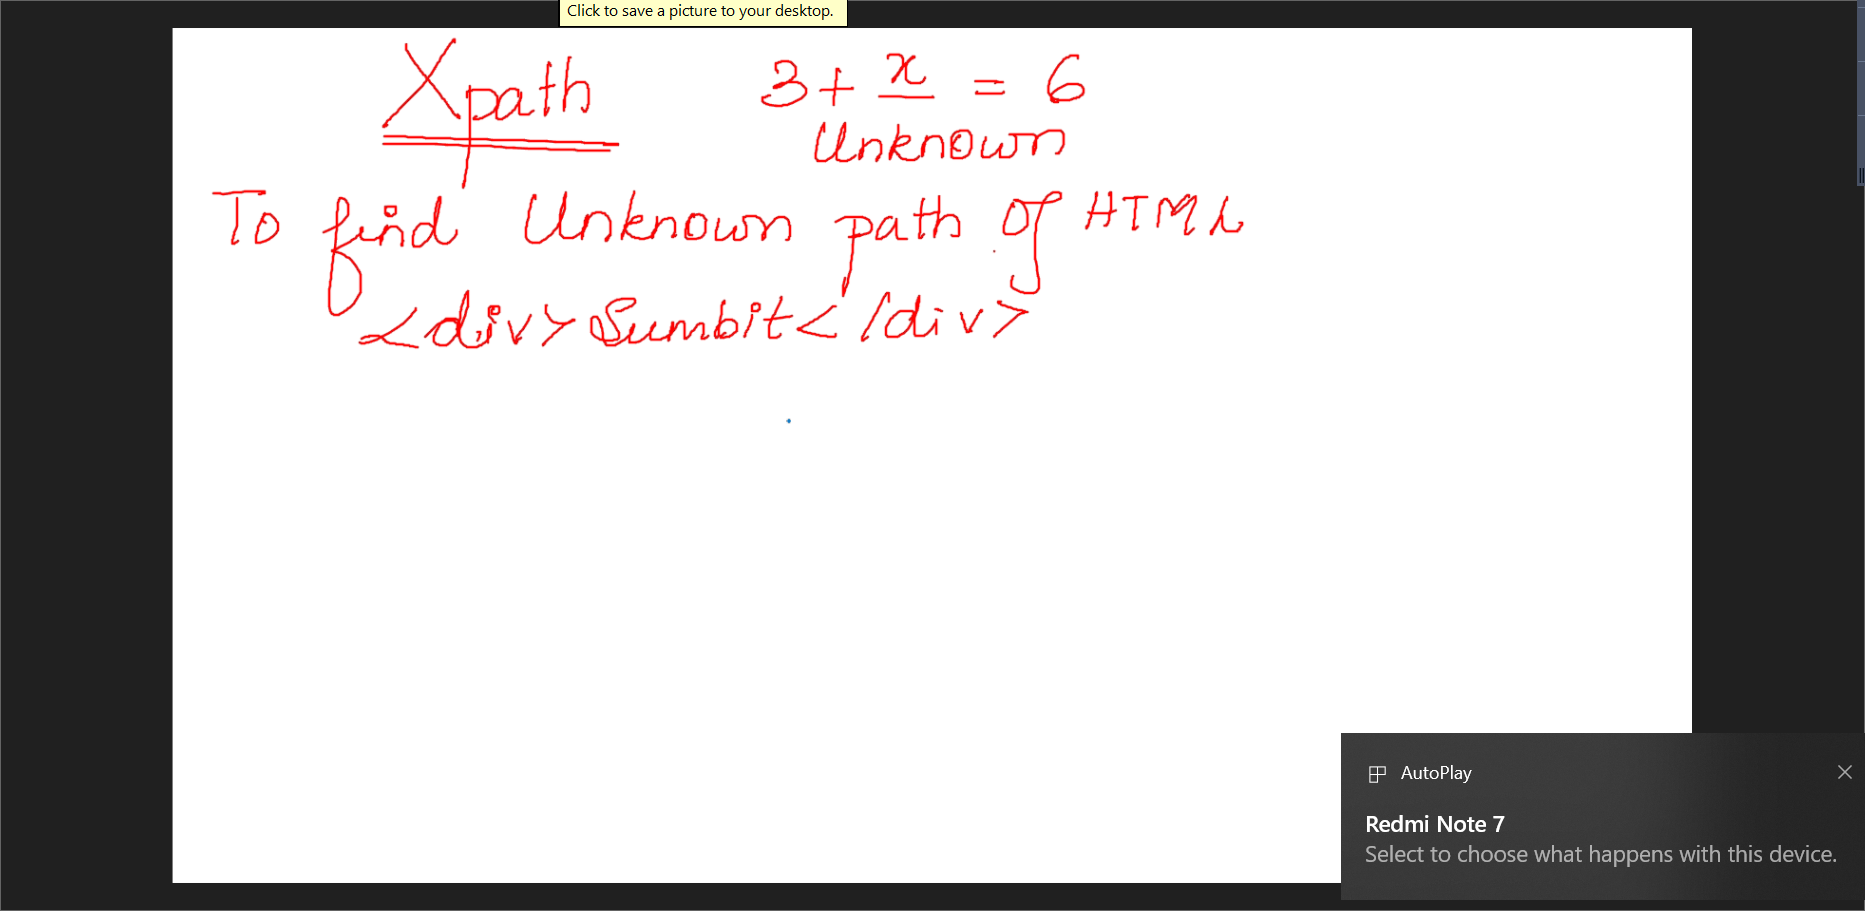 Click to save a picture to your desktop.
Xpath 3+ x = 6
Unknown
To find Unknown path of HTML
<div>Sumbit</div>
AutoPlay
Redmi Note 7
Select to choose what happens with this device.